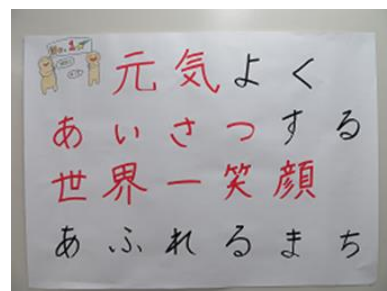 元気よく
あいさつする
世界一笑顔
あふれるまち